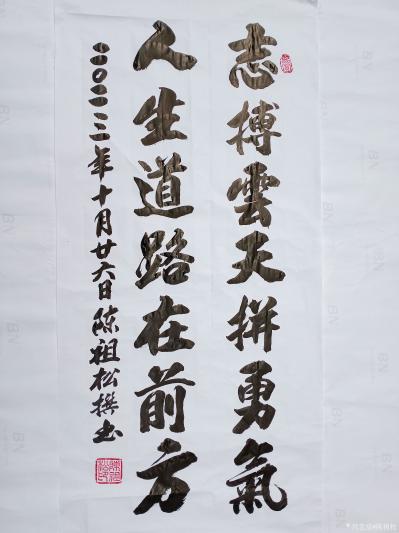 志搏雲天拼勇氣
人生道路在前方
二〇二三年十月廿六日陳祖松撰书